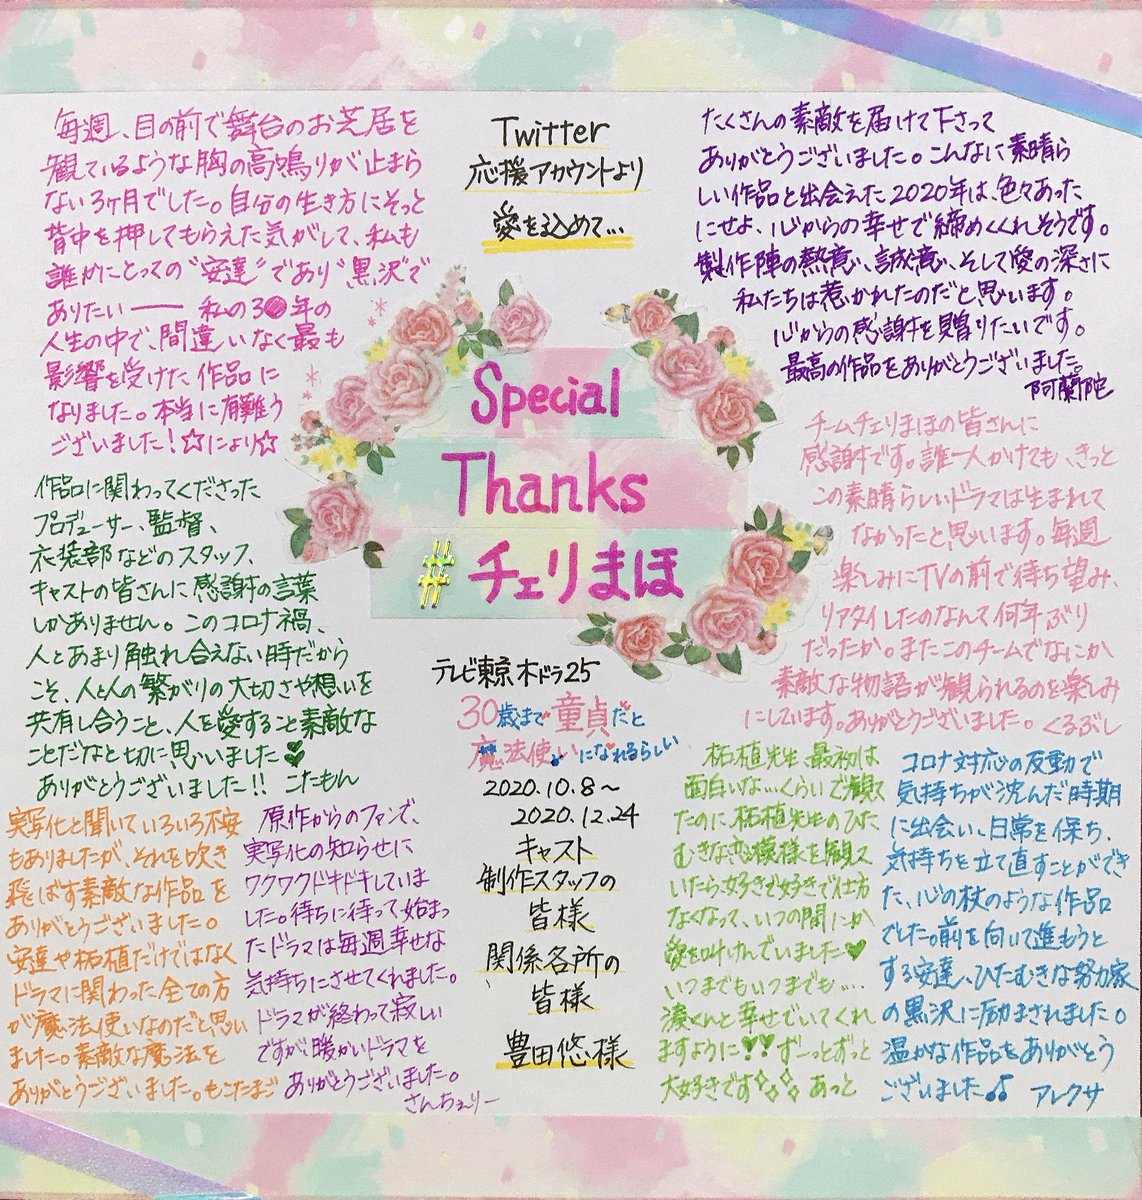 毎週、目の前で舞台のお芝居を
観ているような胸の高鳴りが止まら
ない3ヶ月でした。自分の生き方にそっと
背中を押してもらえた気がして、私も
誰かにとっての“安達”であり“黒沢”で
ありたい── 私の3●年の
人生の中で、間違いなく最も
影響を受けた作品に
なりました。本当に有難う
ございました!☆により☆
Twitter
応援アカウントより
愛を込めて…
たくさんの素敵を届けて下さって
ありがとうございました。こんなに素晴ら
しい作品と出会えた2020年は、色々あった
にせよ、心からの幸せで締めくくれそうです。
製作陣の熱意、誠意、そして愛の深さに
私たちは惹かれたのだと思います。
心からの感謝を贈りたいです。
最高の作品をありがとうございました。
阿蘭陀
Special
Thanks
#チェリまほ
作品に関わってくださった
プロデューサー、監督、
衣装部などのスタッフ、
キャストの皆さんに感謝の言葉
しかありません。このコロナ禍、
人とあまり触れ合えない時だから
こそ、人と人の繋がりの大切さや想いを
共有し合うこと、人を愛すること素敵な
ことだなと切に思いました♥
ありがとうございました!! こたもん
チームチェリまほの皆さんに
感謝です。誰一人かけても、きっと
この素晴らしいドラマは生まれて
なかったと思います。毎週
楽しみにTVの前で待ち望み、
リアタイしたのなんて何年ぶり
だったか。またこのチームでなにか
素敵な物語が観られるのを楽しみ
にしています。ありがとうございました。くるぶし
テレビ東京木ドラ25
30歳まで童貞だと
魔法使いになれるらしい
2020.10.8～
2020.12.24
キャスト
制作スタッフの
皆様
関係各所の
皆様
豊田悠様
実写化と聞いていろいろ不安
もありましたが、それを吹き
飛ばす素敵な作品を
ありがとうございました。
安達や柘植だけではなく
ドラマに関わった全ての方
が魔法使いなのだと思い
ました。素敵な魔法を
ありがとうございました。もこたまご
原作からのファンで、
実写化の知らせに
ワクワクドキドキしていま
した。待ちに待って始まっ
たドラマは毎週幸せな
気持ちにさせてくれました。
ドラマが終わって寂しい
ですが、暖かいドラマを
ありがとうございました。
さんちぇりー
柘植先生、最初は
面白いな…くらいで観て
たのに、柘植先生のひた
むきな恋模様を観て
いたら、好きで好きで仕方
なくなって、いつの間にか
愛を叫けんでいました♥
いつまでもいつまでも…
湊くんと幸せでいてくれ
ますように♥♥ずーっとずっと
大好きです✧✧✧ あっと
コロナ対応の反動で
気持ちが沈んだ時期
に出会い、日常を保ち、
気持ちを立て直すことができ
た、心の杖のような作品
でした。前を向いて進もうと
する安達、ひたむきな努力家
の黒沢に励まされました。
温かな作品をありがとう
ございました♫ アレクサ